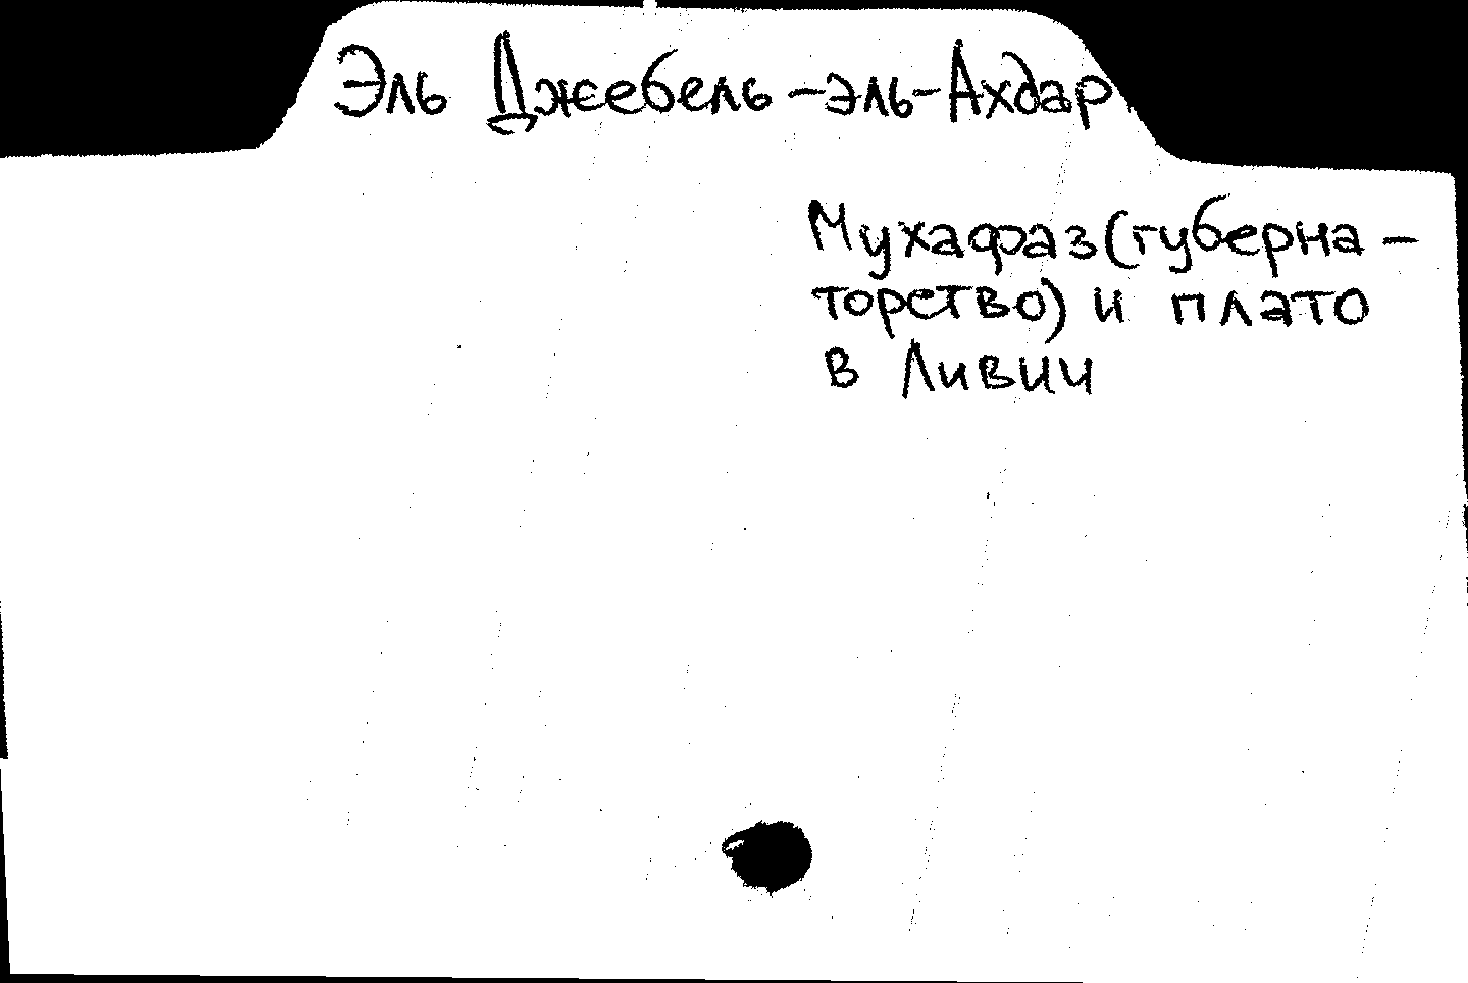 Эль Джебель-эль-Ахдар
Мухафаз(губерна-
торство) и плато
в Ливии